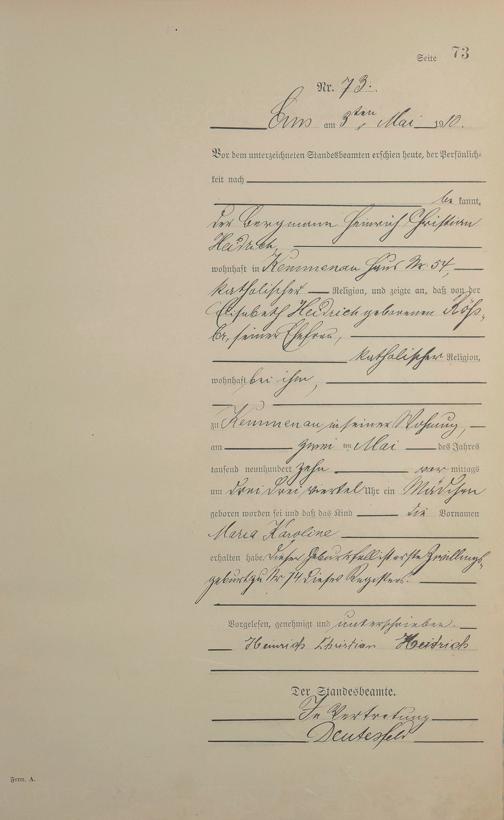 Seite 73
Nr. 73.
Ems am 3ten Mai 1910.
Vor dem unterzeichneten Standesbeamten erschien heute, der Persönlich-
keit nach
be kannt,
der Bergmann Heinrich Christian
Heidrich,
wohnhaft in Kemmenau Haus Nr. 54,
katholischer Religion, und zeigte an, daß von der
Elisabeth Heidrich geborenen
seiner Ehefrau,
katholischer Religion,
wohnhaft bei ihm,
zu Kemmenau in seiner Wohnung,
am zwei ten Mai des Jahres
tausend neunhundert zehn vor mittags
um drei drei viertel Uhr ein Mädchen
geboren worden sei und daß das Kind die Vornamen
Maria Karoline
erhalten habe. Dieser Geburtsfall ist erste Zwillings-
geburt zu Nr 74 dieses Registers.
Vorgelesen, genehmigt und unterschrieben.
Heinrich Christian Heidrich
Der Standesbeamte.
In Vertretung
Form. A.